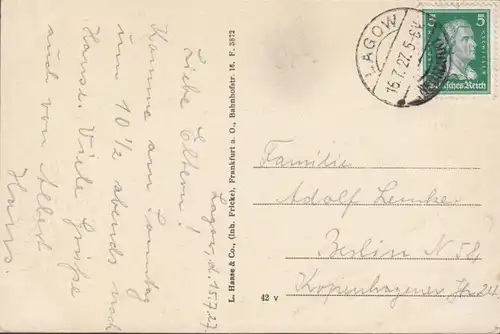 Lagow, d. 15.7.27.
Liebe Eltern!
Komme am Sonntag
um 10 1/2 abends nach
Hause. Viele Grüße
auch von Albert
Hans.
L. Haase & Co., (Inh. Fricke), Frankfurt a. O., Bahnhofstr. 16. F. 3872
42 v
LAGOW
15.7.27. 5-6
5
Deutsches Reich
Familie
Adolf Lemke
Berlin N 58
Kopenhagener Str. 24